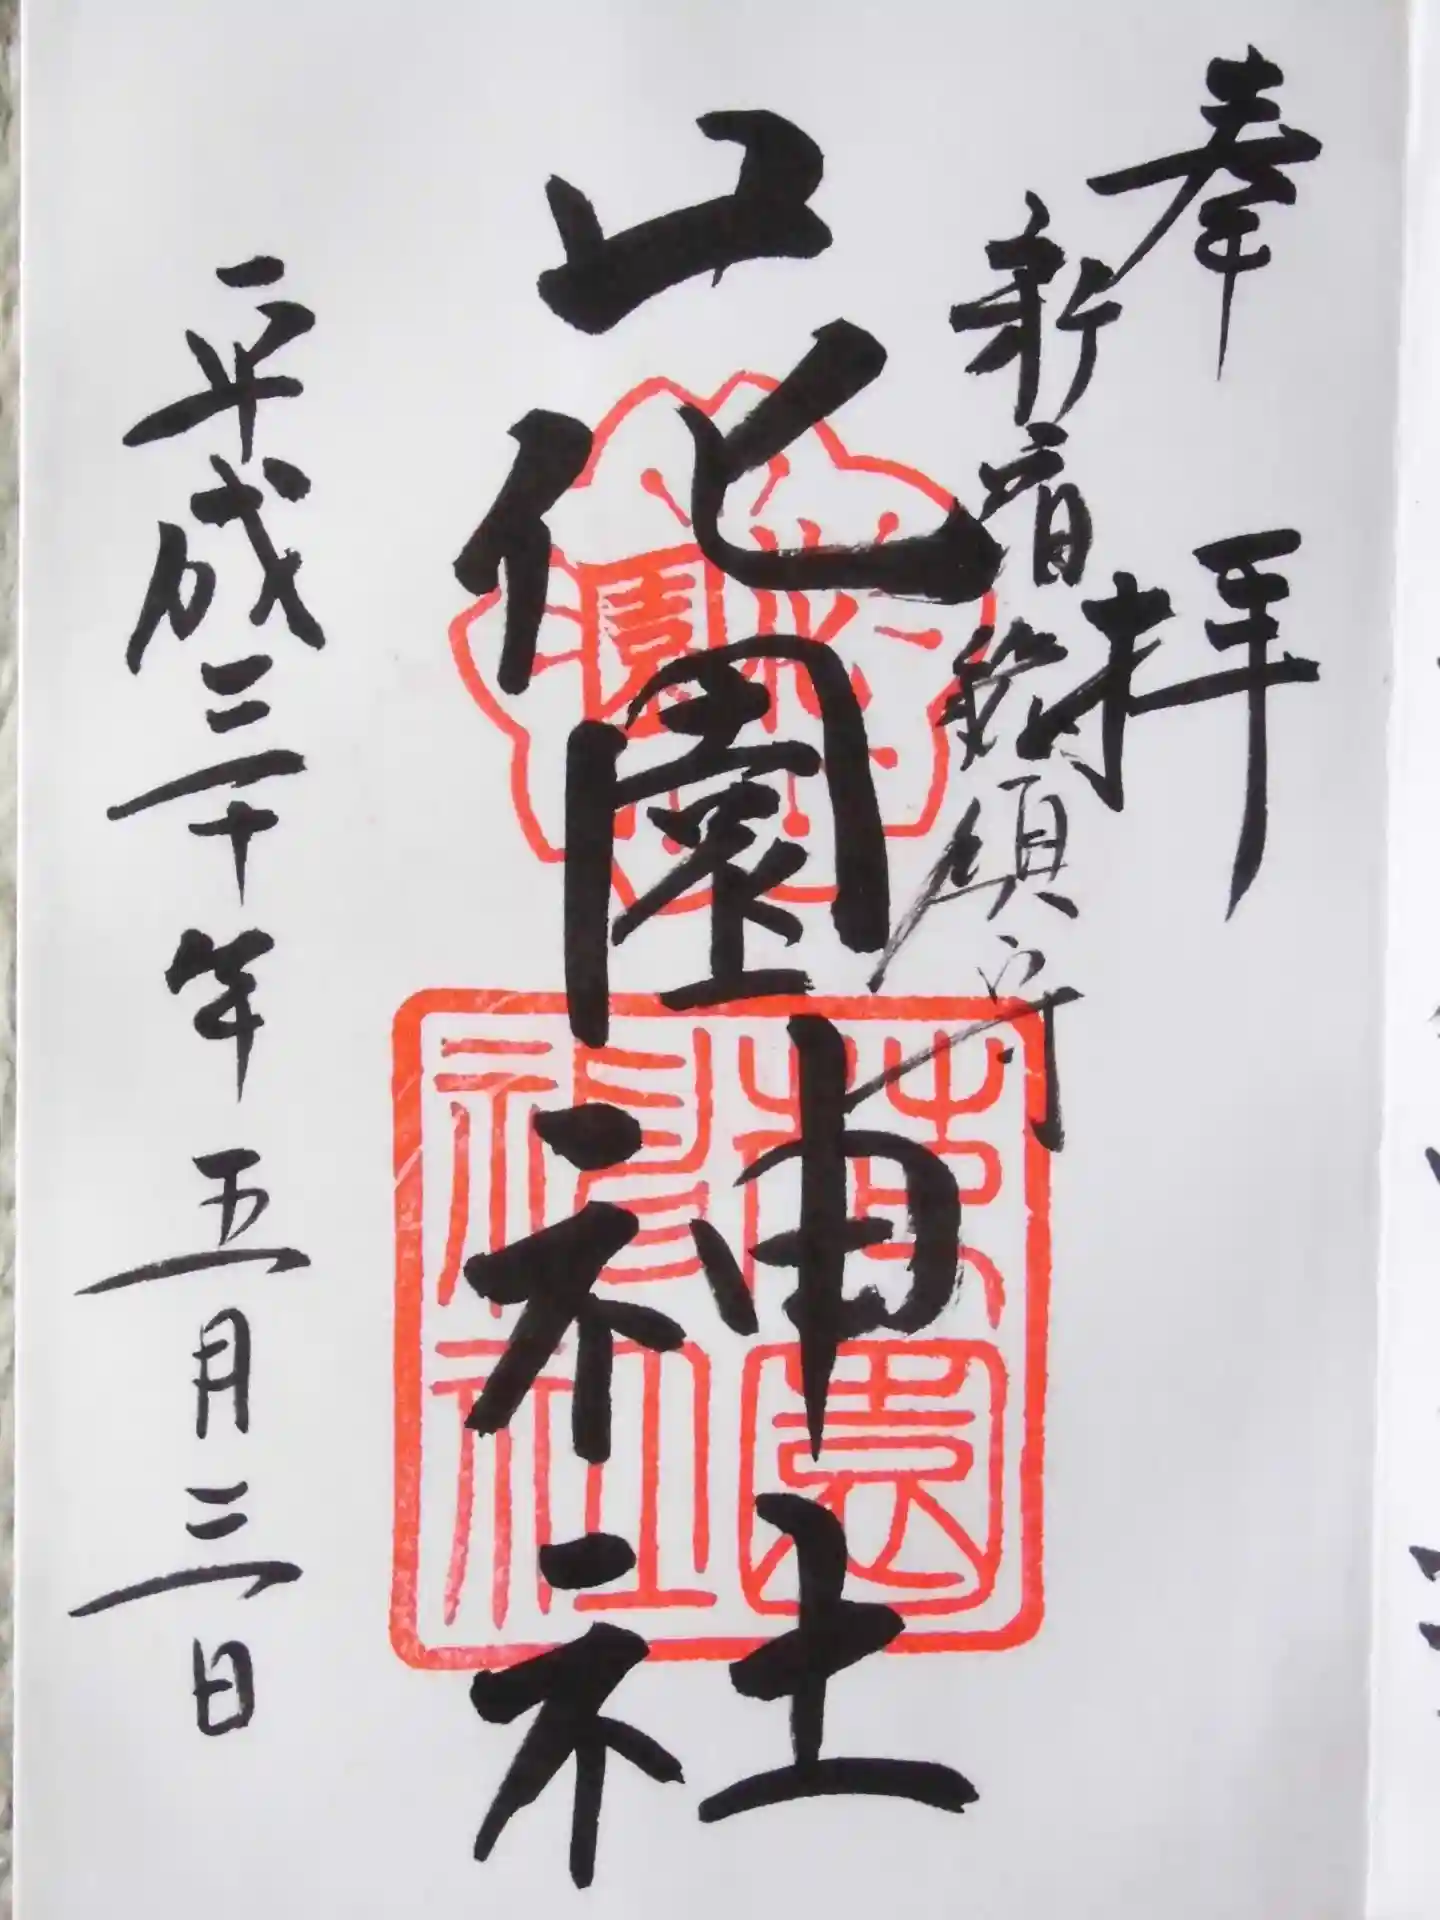 奉拝
新宿総鎮守
花園神社
平成三十年五月三日
花園
神社